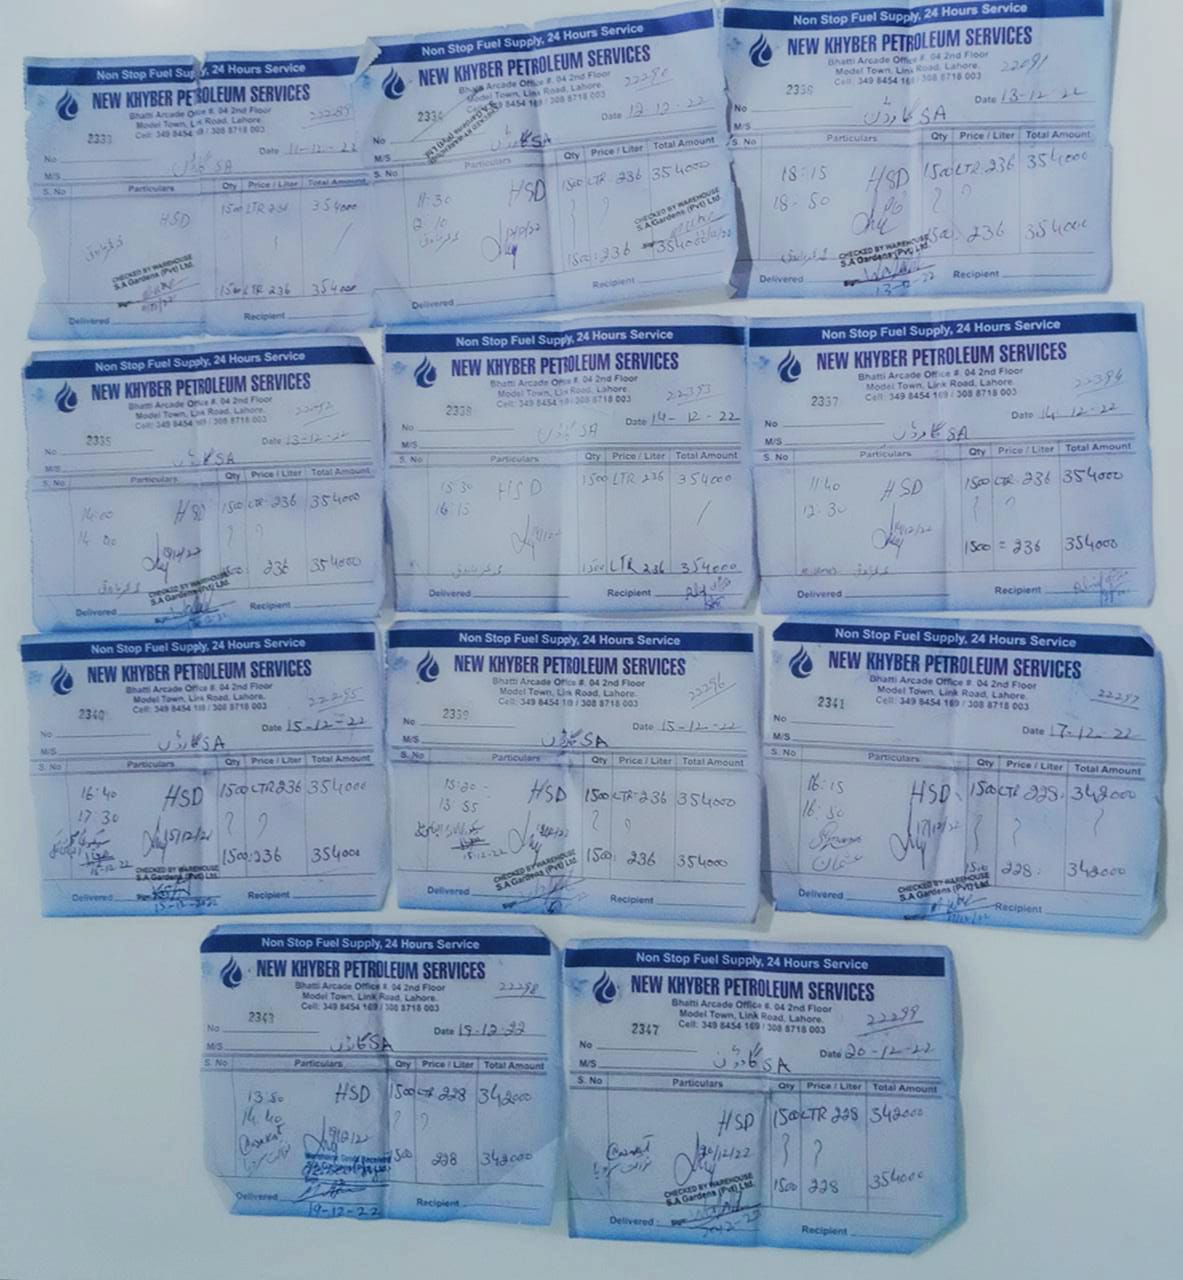 Non Stop Fuel Supply, 24 Hours Service
NEW KHYBER PETROLEUM SERVICES
Bhatti Arcade Office #. 04 2nd Floor
Model Town, Link Road, Lahore.
Cell: 349 8454 169 / 308 8718 003
22289
2333
No
Date 11-12-22
M/S SA گارڈن
S. No Particulars Qty Price / Liter Total Amount
HSD 1500 LTR 236 354000
CHECKED BY WAREHOUSE
S.A Gardens (Pvt) Ltd.
1500 LTR 236 354000
Delivered Recipient
Non Stop Fuel Supply, 24 Hours Service
NEW KHYBER PETROLEUM SERVICES
Bhatti Arcade Office #. 04 2nd Floor
Model Town, Link Road, Lahore.
Cell: 349 8454 169 / 308 8718 003
22290
2334
No
Date 12-12-22
M/S SA گارڈن
S. No Particulars Qty Price / Liter Total Amount
11:30 HSD 1500 LTR 236 354000
12:10
CHECKED BY WAREHOUSE
S.A Gardens (Pvt) Ltd.
1500 236 354000
Delivered Recipient
Non Stop Fuel Supply, 24 Hours Service
NEW KHYBER PETROLEUM SERVICES
Bhatti Arcade Office #. 04 2nd Floor
Model Town, Link Road, Lahore.
Cell: 349 8454 169 / 308 8718 003
22291
2336
No
Date 13-12-22
M/S SA گارڈن
S. No Particulars Qty Price / Liter Total Amount
18:15 HSD 1500 LTR 236 354000
18:50
1500 236 354000
CHECKED BY WAREHOUSE
S.A Gardens (Pvt) Ltd.
Delivered 13-12-22 Recipient
Non Stop Fuel Supply, 24 Hours Service
NEW KHYBER PETROLEUM SERVICES
Bhatti Arcade Office #. 04 2nd Floor
Model Town, Link Road, Lahore.
Cell: 349 8454 169 / 308 8718 003
22292
2335
No
Date 13-12-22
M/S SA گارڈن
S. No Particulars Qty Price / Liter Total Amount
14:00 HSD 1500 LTR 236 354000
1500 236 354000
CHECKED BY WAREHOUSE
S.A Gardens (Pvt) Ltd.
Delivered Recipient
Non Stop Fuel Supply, 24 Hours Service
NEW KHYBER PETROLEUM SERVICES
Bhatti Arcade Office #. 04 2nd Floor
Model Town, Link Road, Lahore.
Cell: 349 8454 169 / 308 8718 003
22293
2338
No
Date 14-12-22
M/S SA گارڈن
S. No Particulars Qty Price / Liter Total Amount
15:30 HSD 1500 LTR 236 354000
16:15
1500 LTR 236 354000
Delivered Recipient
Non Stop Fuel Supply, 24 Hours Service
NEW KHYBER PETROLEUM SERVICES
Bhatti Arcade Office #. 04 2nd Floor
Model Town, Link Road, Lahore.
Cell: 349 8454 169 / 308 8718 003
22294
2337
No
Date 14-12-22
M/S SA گارڈن
S. No Particulars Qty Price / Liter Total Amount
11:40 HSD 1500 LTR 236 354000
12:30
1500 = 236 354000
Delivered Recipient
Non Stop Fuel Supply, 24 Hours Service
NEW KHYBER PETROLEUM SERVICES
Bhatti Arcade Office #. 04 2nd Floor
Model Town, Link Road, Lahore.
Cell: 349 8454 169 / 308 8718 003
22295
2340
No
Date 15-12-22
M/S SA گارڈن
S. No Particulars Qty Price / Liter Total Amount
16:40 HSD 1500 LTR 236 354000
17:30
15/12/22
15-12-22 1500 236 354000
CHECKED BY WAREHOUSE
S.A Gardens (Pvt) Ltd.
Delivered Recipient
15-12-2022
Non Stop Fuel Supply, 24 Hours Service
NEW KHYBER PETROLEUM SERVICES
Bhatti Arcade Office #. 04 2nd Floor
Model Town, Link Road, Lahore.
Cell: 349 8454 169 / 308 8718 003
22296
2339
No
Date 15-12-22
M/S SA گارڈن
S. No Particulars Qty Price / Liter Total Amount
HSD 1500 LTR 236 354000
15-12-22 1500 236 354000
CHECKED BY WAREHOUSE
S.A Gardens (Pvt) Ltd.
Delivered Recipient
Non Stop Fuel Supply, 24 Hours Service
NEW KHYBER PETROLEUM SERVICES
Bhatti Arcade Office #. 04 2nd Floor
Model Town, Link Road, Lahore.
Cell: 349 8454 169 / 308 8718 003
22297
2341
No
Date 17-12-22
M/S SA گارڈن
S. No Particulars Qty Price / Liter Total Amount
16:15 HSD 1500 LTR 228 342000
16:50
17/12/22
عثمان
1500 228 342000
CHECKED BY WAREHOUSE
S.A Gardens (Pvt) Ltd.
Delivered Recipient
Non Stop Fuel Supply, 24 Hours Service
NEW KHYBER PETROLEUM SERVICES
Bhatti Arcade Office #. 04 2nd Floor
Model Town, Link Road, Lahore.
Cell: 349 8454 169 / 308 8718 003
22298
2343
No
Date 19-12-22
M/S SA گارڈن
S. No Particulars Qty Price / Liter Total Amount
13:50 HSD 1500 LTR 228 342000
14:40
19/12/22
1500 228 342000
Delivered Recipient
19-12-22
Non Stop Fuel Supply, 24 Hours Service
NEW KHYBER PETROLEUM SERVICES
Bhatti Arcade Office #. 04 2nd Floor
Model Town, Link Road, Lahore.
Cell: 349 8454 169 / 308 8718 003
22299
2347
No
Date 20-12-22
M/S SA گارڈن
S. No Particulars Qty Price / Liter Total Amount
HSD 1500 LTR 228 342000
20/12/22
1500 228 354000
CHECKED BY WAREHOUSE
S.A Gardens (Pvt) Ltd.
Delivered Recipient